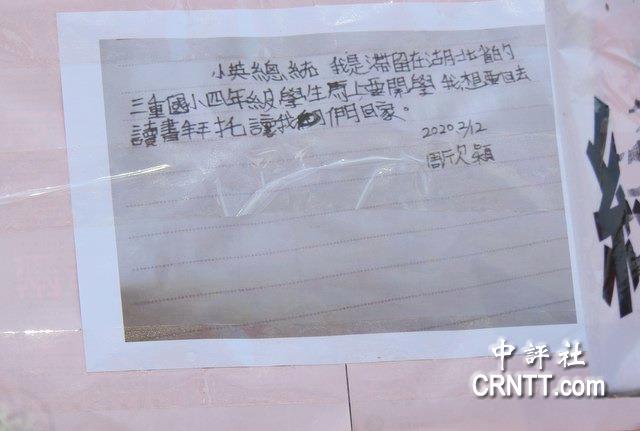 小英總統 我是滯留在湖北省的
三重國小四年級學生馬上要開學 我想要回去
讀書拜托讓我們回家。
2020 2/12
周欣穎
中評社
CRNTT.com